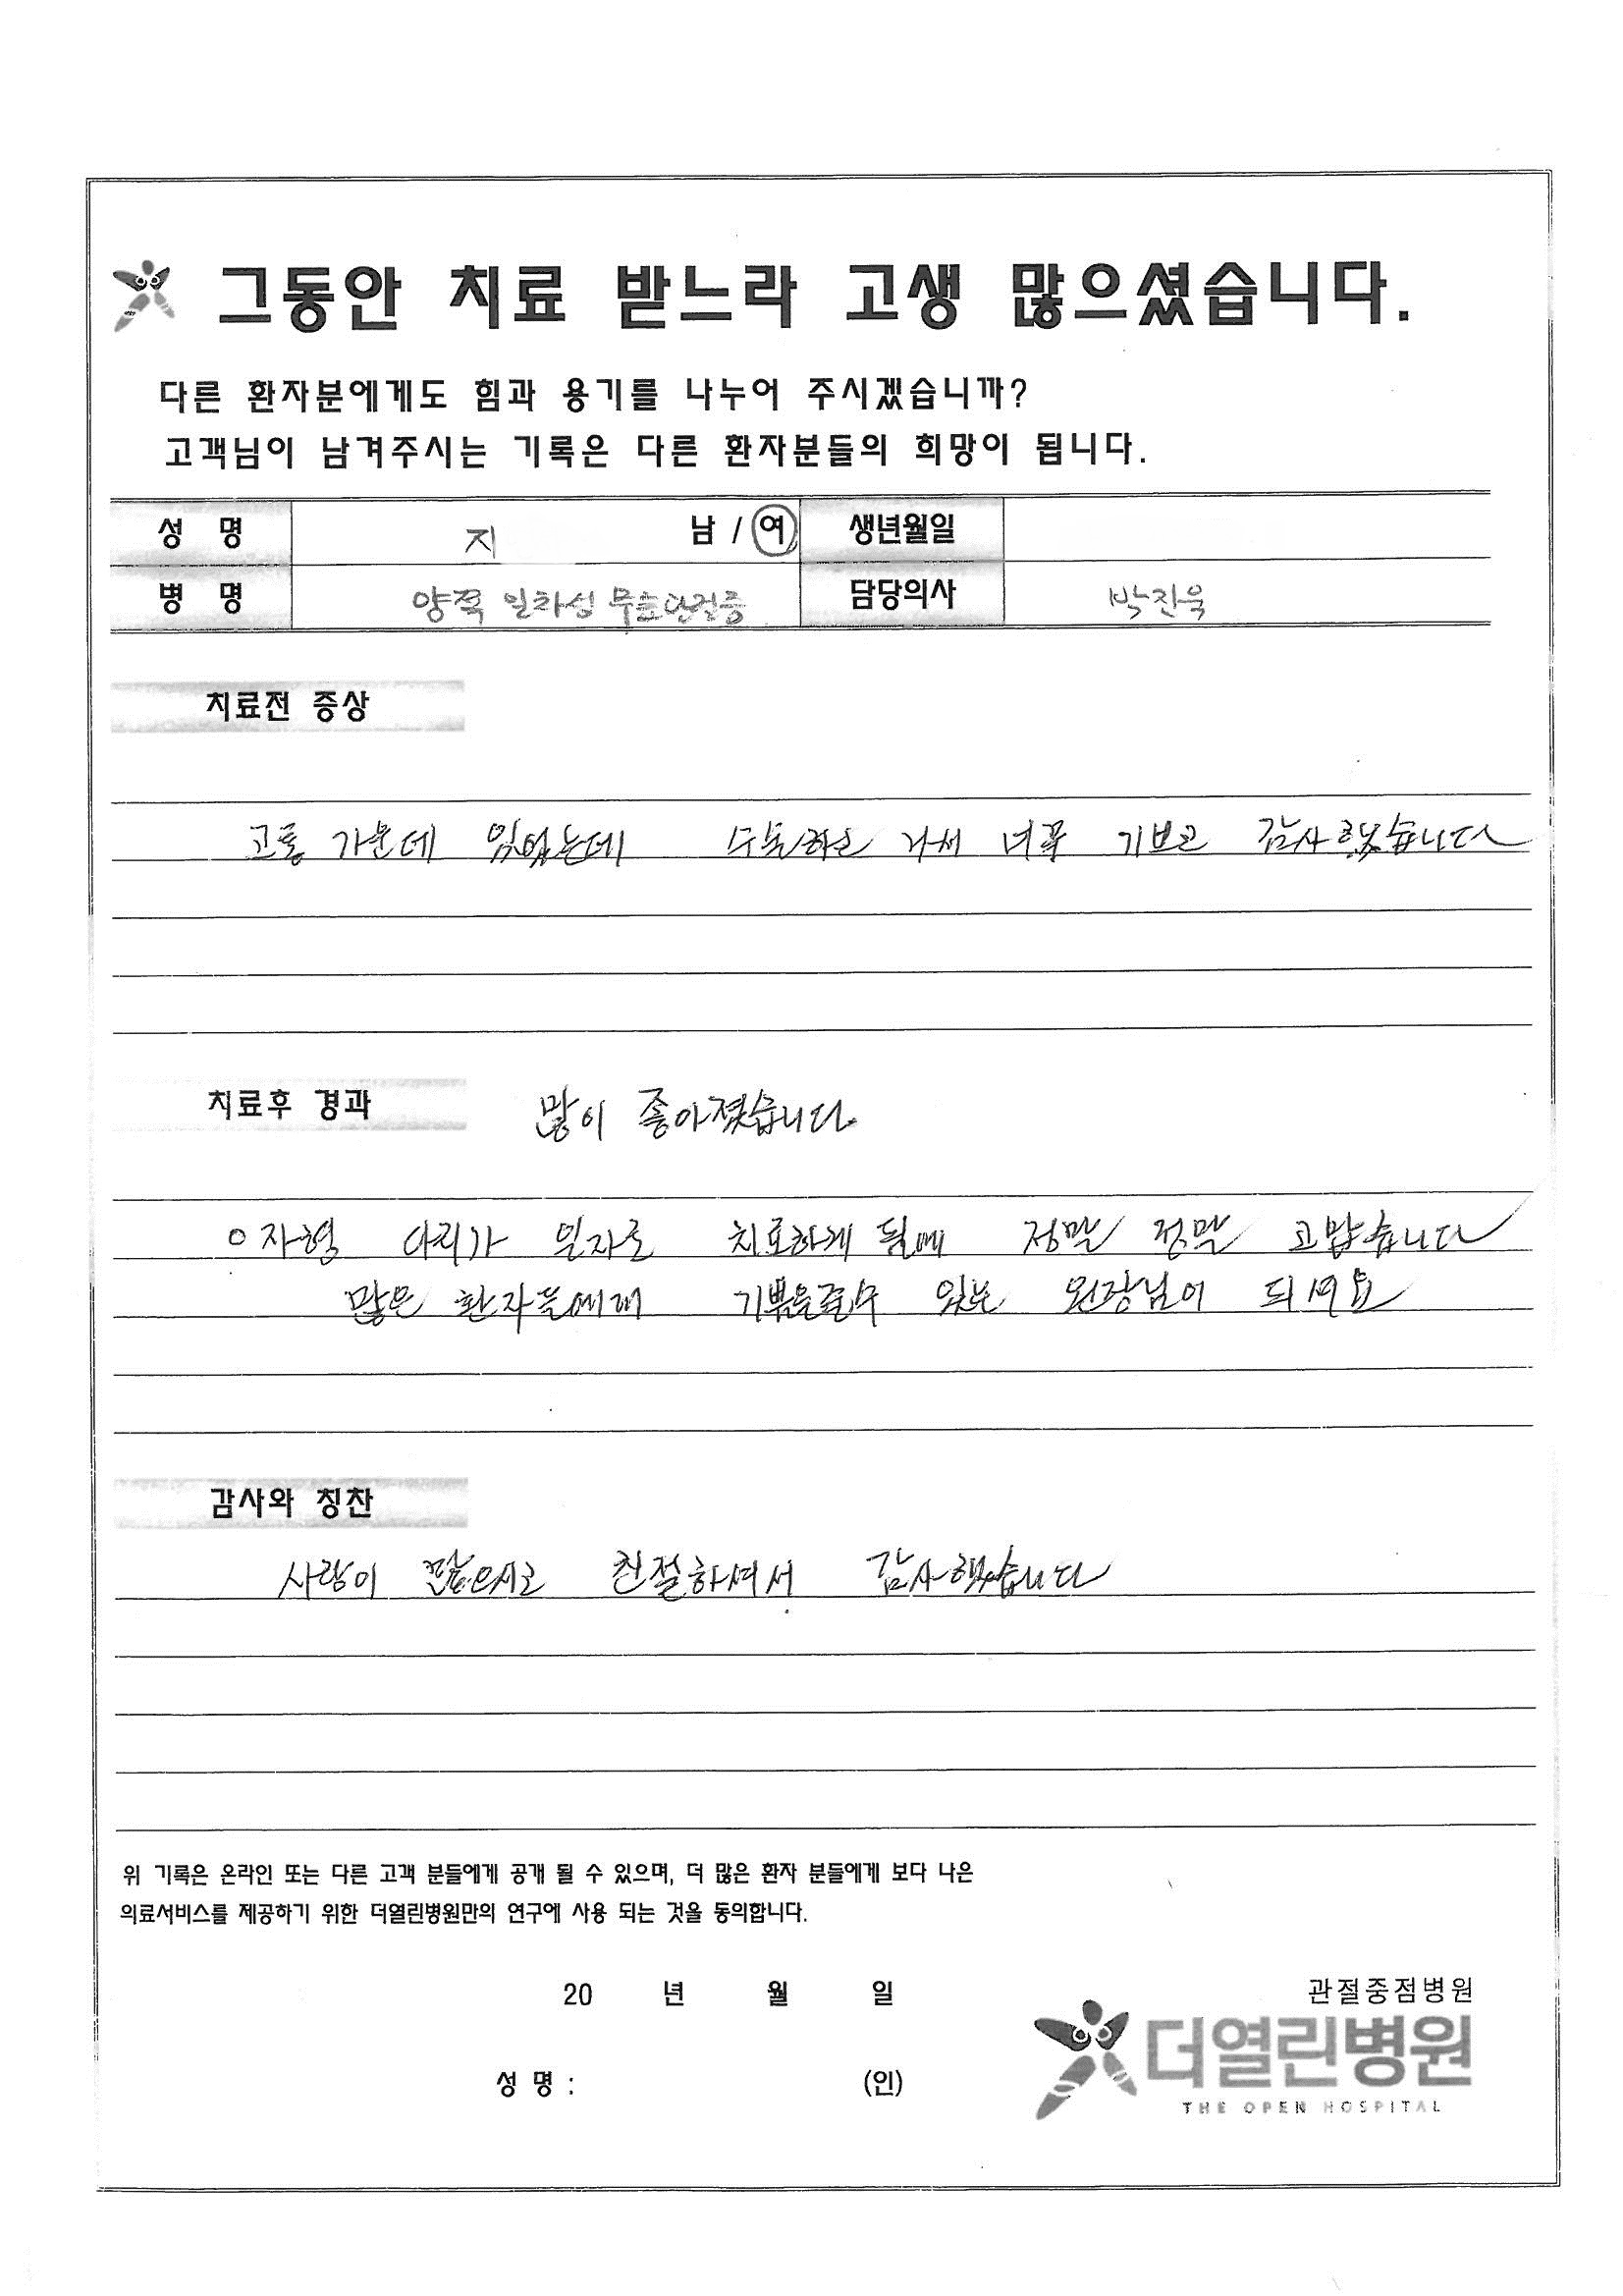 그동안 치료 받느라 고생 많으셨습니다.
다른 환자분에게도 힘과 용기를 나누어 주시겠습니까?
고객님이 남겨주시는 기록은 다른 환자분들의 희망이 됩니다.
성 명 지 남 / 여 생년월일
병 명 양쪽 일차성 무릎관절증 담당의사 박진욱
치료전 증상
고통 가운데 있었는데 수술하고 나서 너무 기쁘고 감사했습니다
치료후 경과 많이 좋아졌습니다.
O자형 다리가 일자로 치료하게 됨에 정말 정말 고맙습니다
많은 환자들에게 기쁨을줄수 있는 원장님이 되세요
감사와 칭찬
사랑이 많으시고 친절하셔서 감사했습니다
위 기록은 온라인 또는 다른 고객 분들에게 공개 될 수 있으며, 더 많은 환자 분들에게 보다 나은
의료서비스를 제공하기 위한 더열린병원만의 연구에 사용 되는 것을 동의합니다.
20 년 월 일
성 명 : (인)
관절중점병원
더열린병원
THE OPEN HOSPITAL